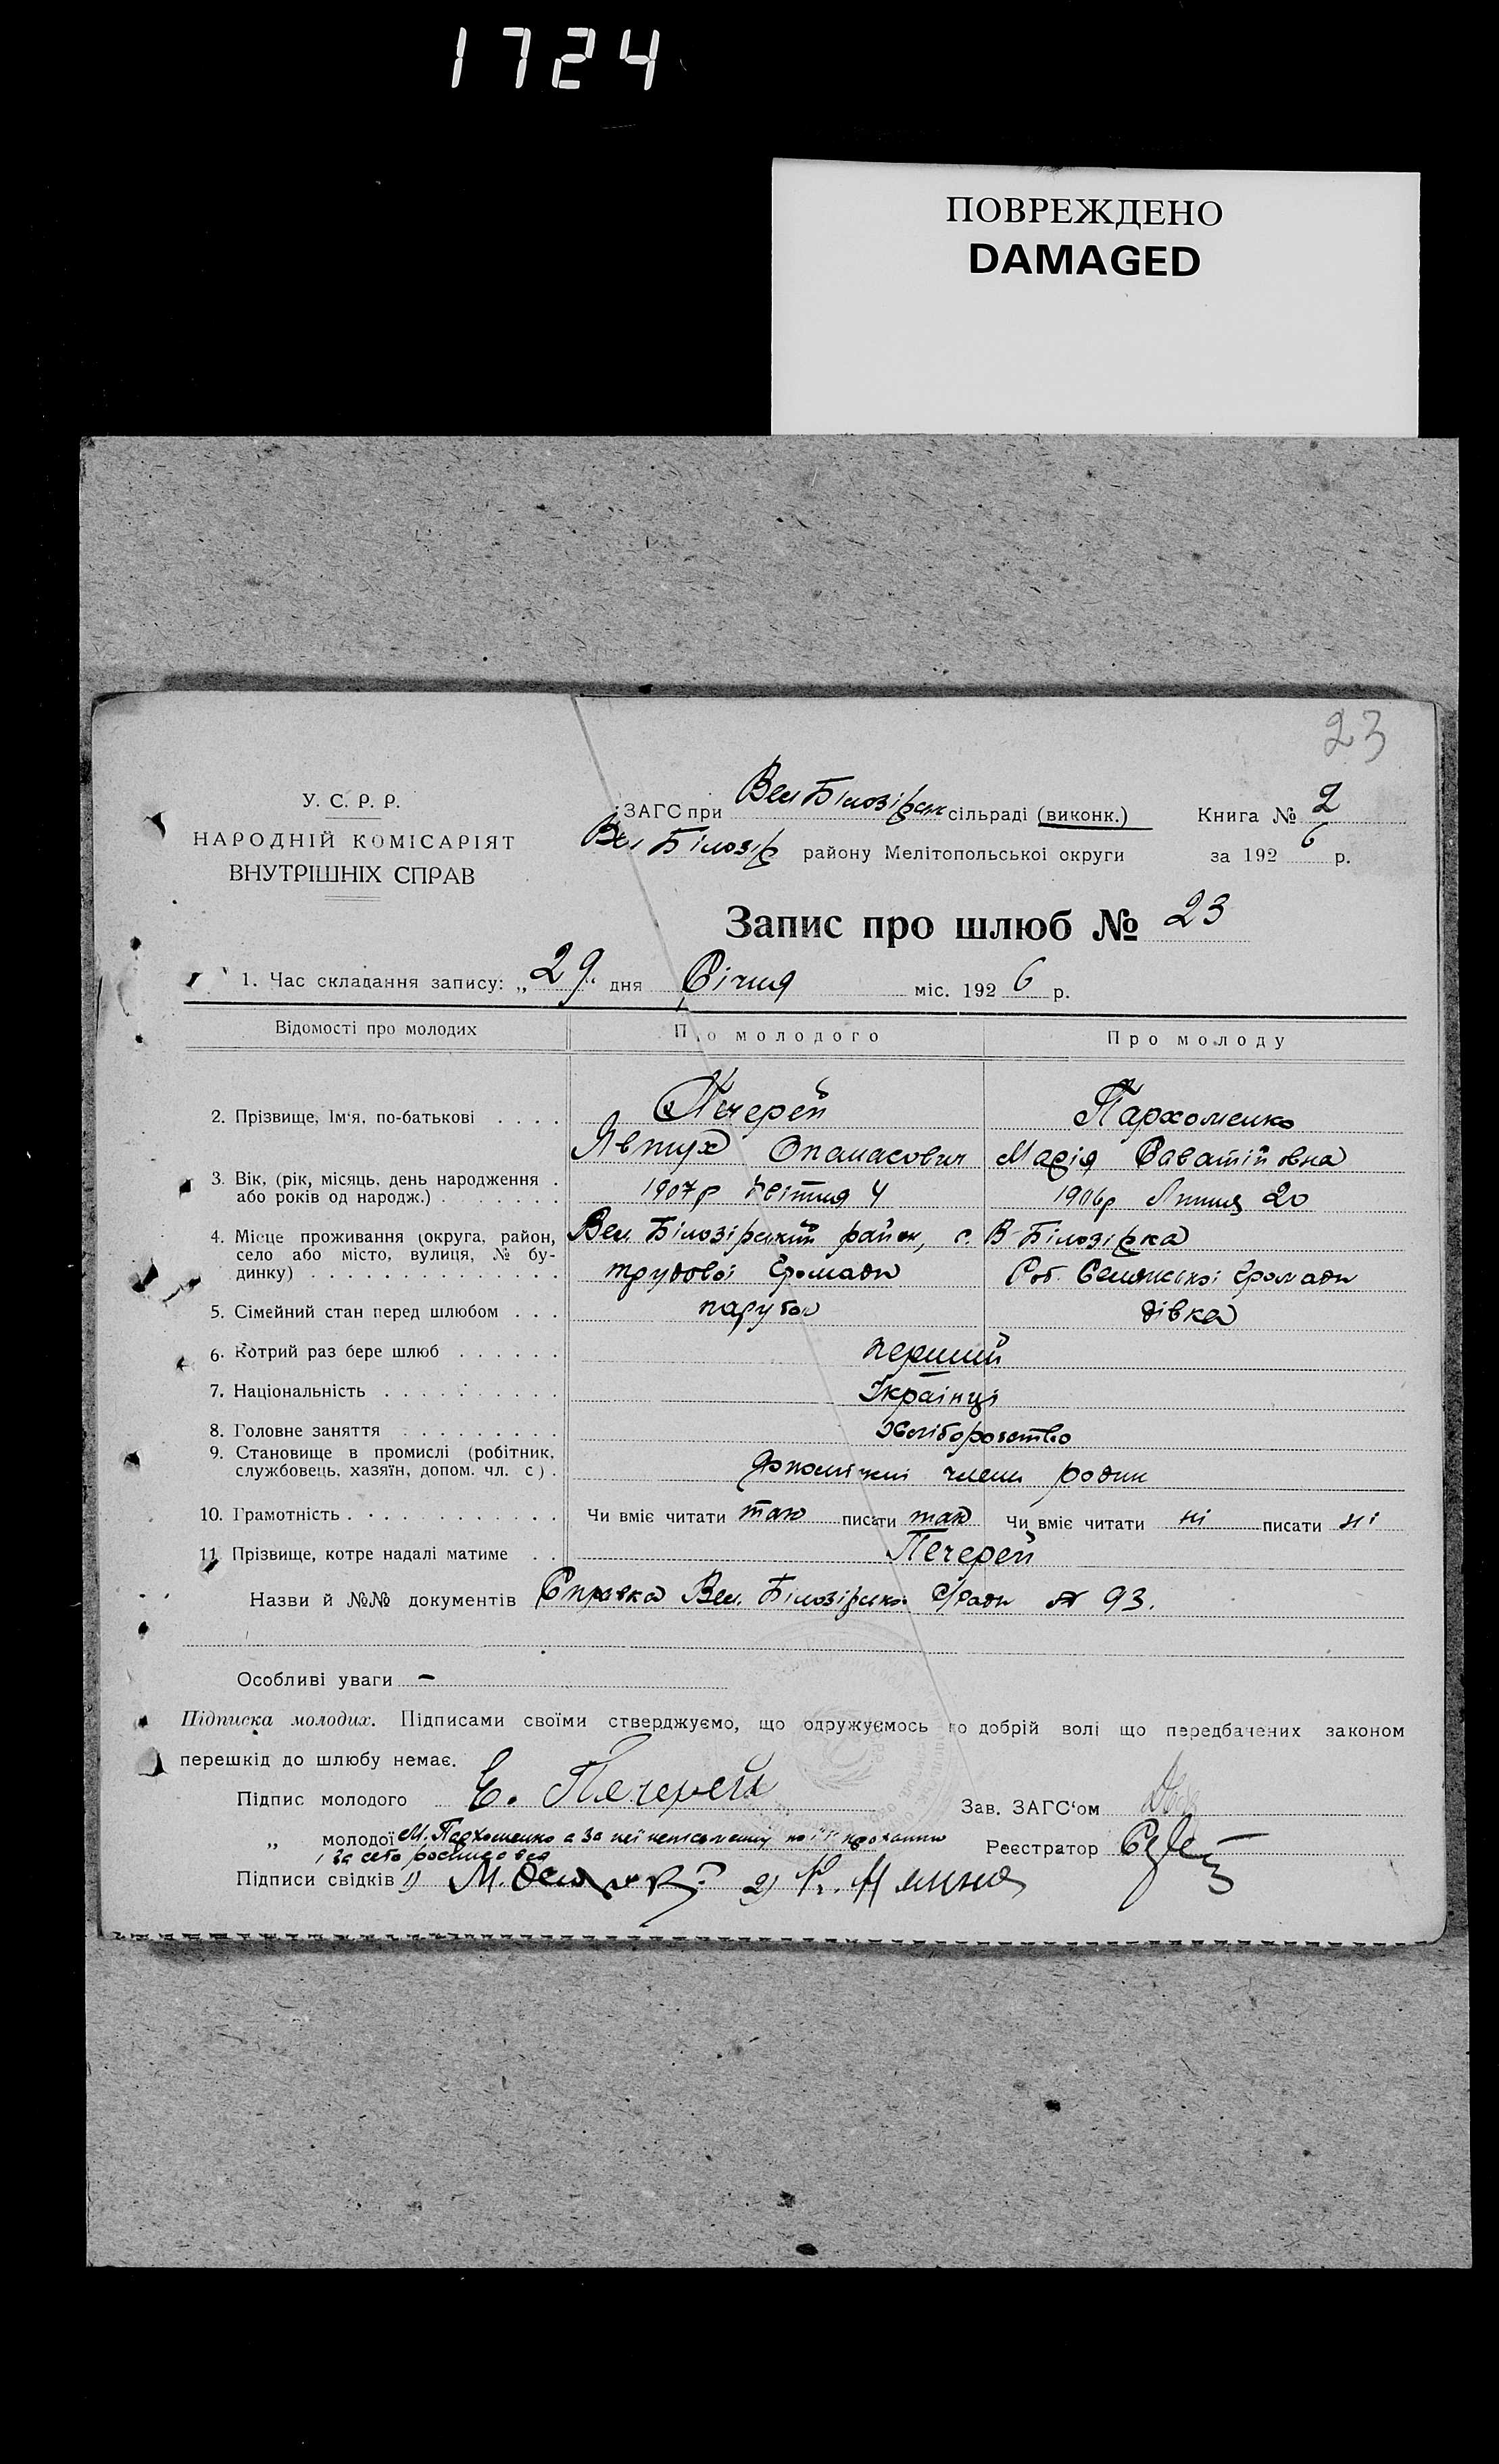 1724
ПОВРЕЖДЕНО
DAMAGED
23
У. С. Р. Р.
НАРОДНІЙ КОМІСАРІЯТ
ВНУТРІШНІХ СПРАВ
ЗАГС при Вел Білозірск сільраді (виконк.)
Вел Білозір району Мелітопольської округи
Книга № 2
за 1926 р.
Запис про шлюб № 23
1. Час складання запису: „29“ дня Січня міс. 1926 р.
Відомості про молодих
Про молодого
Про молоду
2. Прізвище, Ім'я, по-батькові . . . .
Печерей
Пархоменко
Явтух Опанасович
Марія Саватіївна
3. Вік, (рік, місяць, день народження .
або років од народж.) . . . . . . .
1907р Квітня 4
1906р Липня 20
4. Місце проживання (округа, район,
село або місто, вулиця, № бу-
динку) . . . . . . . . . . . . . .
Вел Білозірський район, с. В-Білозірка
трудової громади
Роб. Селянської громади
5. Сімейний стан перед шлюбом . . .
парубок
дівка
6. Котрий раз бере шлюб . . . . . .
перший
7. Національність . . . . . . . . . .
Українці
8. Головне заняття . . . . . . . . .
Хліборобство
9. Становище в промислі (робітник,
службовець, хазяїн, допом. чл. с) .
допомічні члени родин
10. Грамотність . . . . . . . . . . . .
Чи вміє читати так писати так
Чи вміє читати ні писати ні
11. Прізвище, котре надалі матиме . .
Печерей
Назви й №№ документів Справка Вел. Білозірської С/ради № 93.
Особливі уваги –
Підписка молодих. Підписами своїми стверджуємо, що одружуємось по добрій волі що передбачених законом
перешкід до шлюбу немає.
Підпис молодого Є. Печерей
Зав. ЗАГС'ом
„ молодої М. Пархоменко а за неї неписьменну по її проханню
і за себе росписався
Реєстратор
Підписи свідків 1) М. 2)